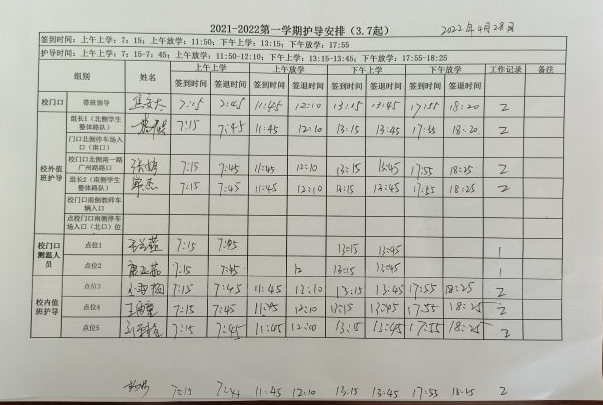 2021-2022第一学期护导安排（3.7起） 2022年4月28日
签到时间：上午上学：7：15；上午放学：11:50；下午上学：13:15；下午放学：17:55
护导时间：上午上学：7:15-7：45；上午放学：11:50-12:10；下午上学：13:15-13:45；下午放学：17:55-18:25
组别 姓名 上午上学 上午放学 下午上学 下午放学 工作记录 备注
签到时间 签退时间 签到时间 签退时间 签到时间 签退时间 签到时间 签退时间
校门口 带班领导 7:15 7:45 11:45 12:10 13:15 13:45 17:55 18:20 2
校外值班护导 组长1（北侧学生整体路队） 7:15 7:45 11:45 12:10 13:15 13:45 17:55 18:20 2
门口北侧停车场入口（南口）
校门口北侧南一路广州路路口 7:15 7:45 11:45 12:10 13:15 13:45 17:55 18:25 2
组长2（南侧学生整体路队） 7:15 7:45 11:45 12:10 13:15 13:45 17:55 18:25 2
校门口南侧教师车辆入口
点校门口南侧停车场入口（北口）位
校门口测温人员 点位1 7:15 7:45 13:15 13:45 1
点位2 7:15 7:45 12 13:15 13:45 1
校内值班护导 点位3 7:15 7:45 11:45 12:10 13:15 13:45 17:55 18:25 2
点位4 7:15 7:45 11:45 12:10 13:15 13:45 17:55 18:25 2
点位5 7:15 7:45 11:45 12:10 13:15 13:45 17:55 18:25 2
7:15 7:44 11:45 12:10 13:15 13:45 17:55 18:25 2